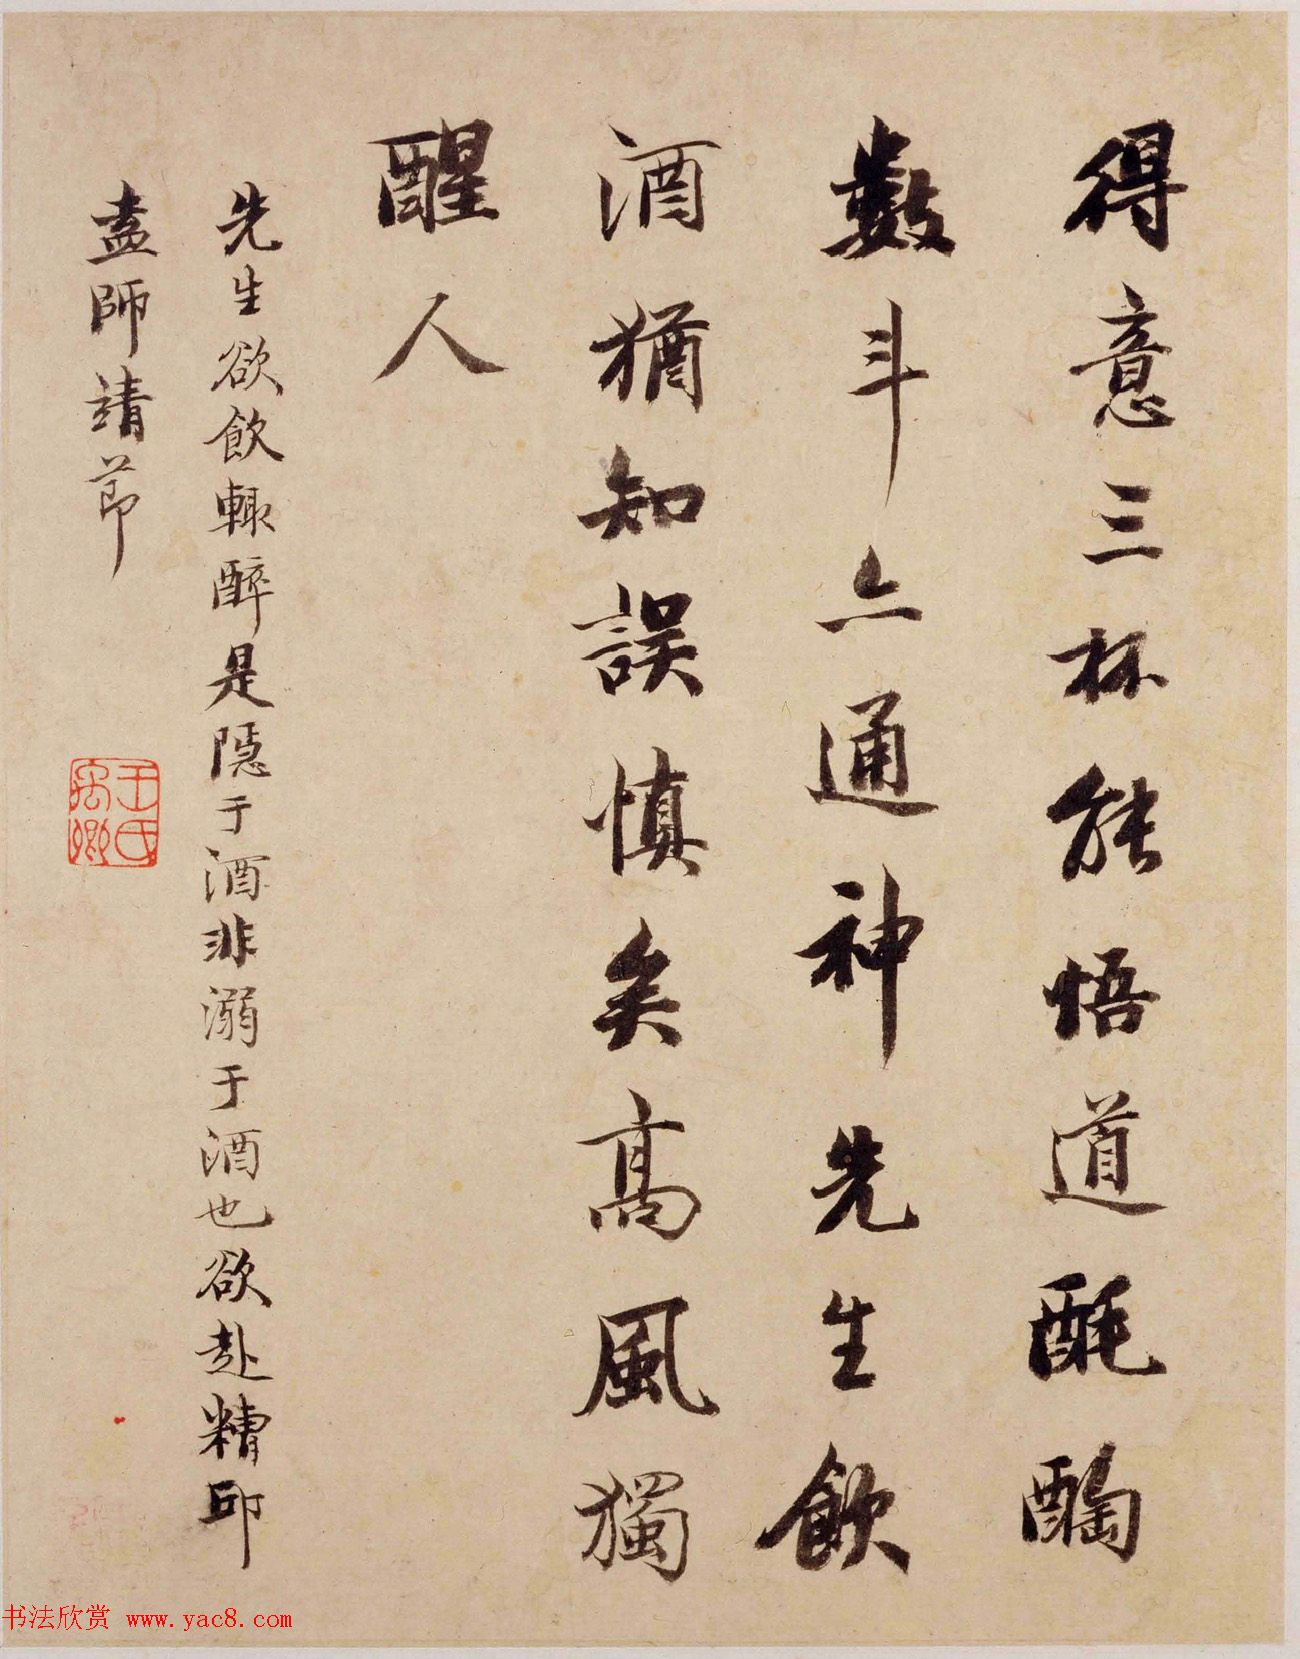 得意三杯能悟道酕醄
數斗亦通神先生飲
酒猶知誤慎矣高風獨
醒人
先生欲飲輙醉是隱于酒非溺于酒也欲赴糟邱
盍師靖節
王氏
书法欣赏 www.yac8.com